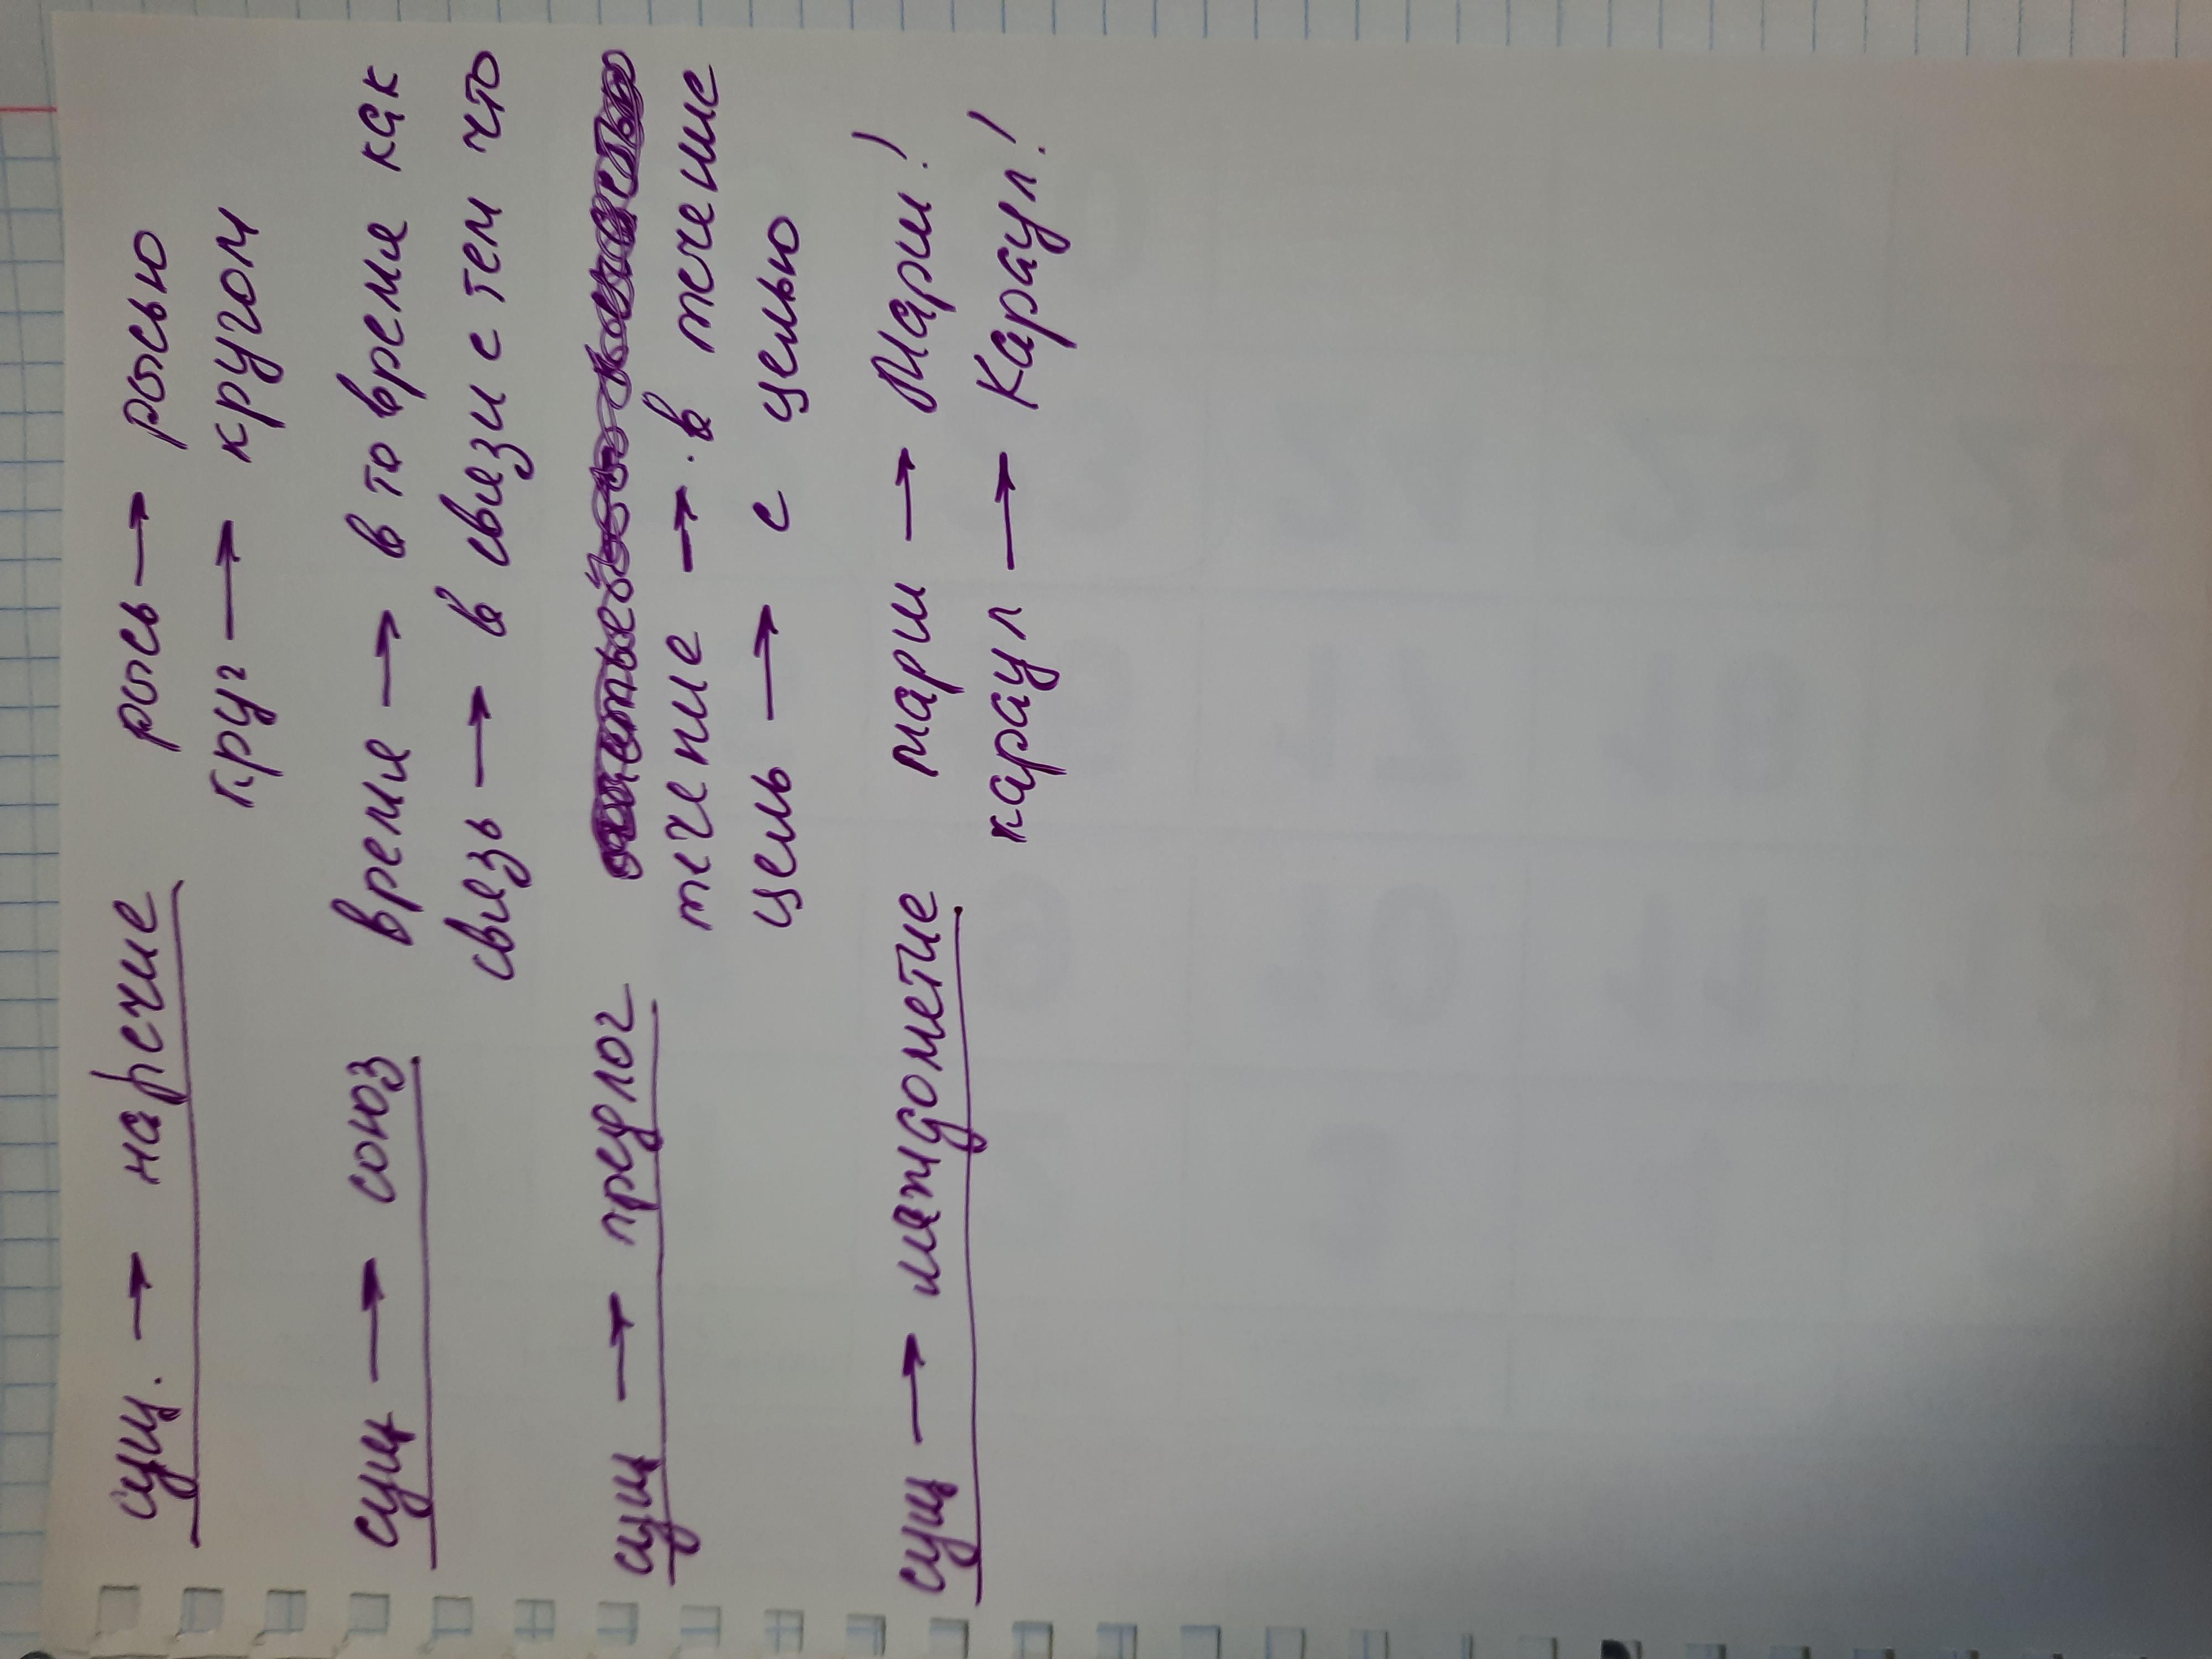 сущ. → наречие рысь → рысью
круг → кругом
сущ → союз время → в то время как
связь → в связи с тем что
сущ → предлог
течение → в течение
цель → с целью
сущ → междометие марш → Марш!
караул → Караул!